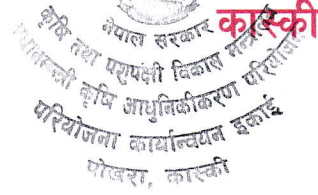 कास्की
नेपाल सरकार
कृषि तथा पशुपंक्षी विकास मन्त्रालय
प्रधानमन्त्री कृषि आधुनिकीकरण परियोजना
परियोजना कार्यान्वयन इकाई
पोखरा, कास्की